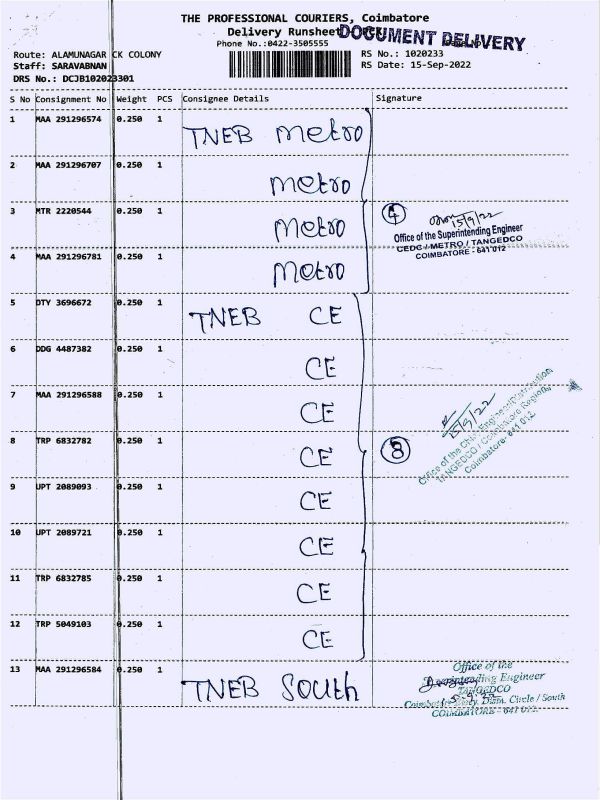 THE PROFESSIONAL COURIERS, Coimbatore
Delivery Runsheet
DOCUMENT DELIVERY
Phone No.:0422-3505555
Route: ALAMUNAGAR CK COLONY
RS No.: 1020233
Staff: SARAVABNAN
RS Date: 15-Sep-2022
DRS No.: DCJB102023301
S No Consignment No Weight PCS Consignee Details Signature
1 MAA 291296574 0.250 1 TNEB Metro
2 MAA 291296707 0.250 1 Metro
3 MTR 2220544 0.250 1 Metro
4 15/9/22
Office of the Superintending Engineer
CEDC / METRO / TANGEDCO
COIMBATORE - 641 012
4 MAA 291296781 0.250 1 Metro
5 DTY 3696672 0.250 1 TNEB CE
6 DDG 4487382 0.250 1 CE
7 MAA 291296588 0.250 1 CE
15/9/22
Office of the Chief Engineer/Distribution
TANGEDCO / Coimbatore Region,
Coimbatore- 641 012
8 TRP 6832782 0.250 1 CE
8
9 UPT 2089093 0.250 1 CE
10 UPT 2089721 0.250 1 CE
11 TRP 6832785 0.250 1 CE
12 TRP 5049103 0.250 1 CE
13 MAA 291296584 0.250 1 TNEB South
Office of the
Superintending Engineer
TANGEDCO
Coimbatore Elecy. Distn. Circle / South
COIMBATORE - 641 012.